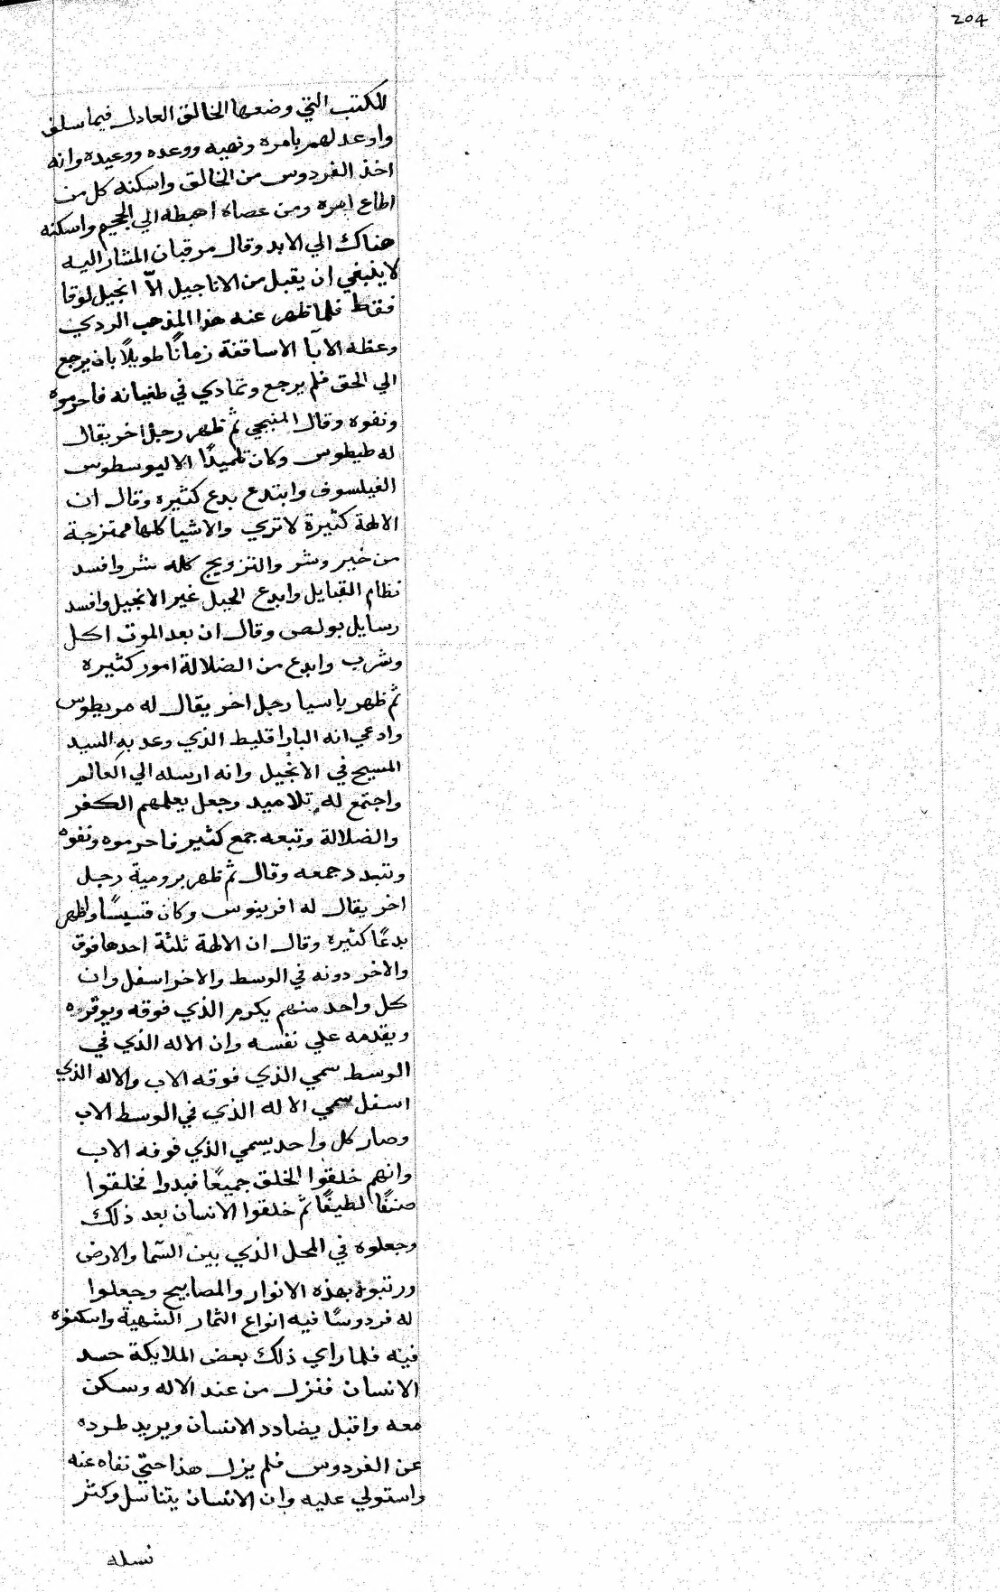 204
للكتب التي وضعها الخالق العادل فيما سلف
واوعد لهم بامره ونهيه ووعده ووعيده وانه
اخذ الفردوس من الخالق واسكنه كل من
اطاع امره ومن عصاه اهبطه الي الجحيم واسكنه
هناك الي الابد وقال مرقيان المشار اليه
لا ينبغي ان يقبل من الاناجيل الّا انجيل لوقا
فقط فلما ظهر عنه هذا المذهب الردي
وعظه الابآ الاساقفة زمانًا طويلًا بان يرجع
الي الحق فلم يرجع وتمادي في طغيانه فاحرموه
ونفوه وقال المنبجي ثم ظهر رجل اخر يقال
له طيطوس وكان تلميذًا لاليوسطوس
الفيلسوف وابتدع بدع كثيره وقال ان
الالهة كثيرة لا تري والاشيا كلها ممتزجة
من خير وشر والتزويج كله شر وافسد
نظام القبايل وابدع انجيل غير الانجيل وافسد
رسايل بولص وقال ان بعد الموت اكل
وشرب وابدع من الضلالة امور كثيره
ثم ظهر باسيا رجل اخر يقال له مريطوس
وادعي انه البارا قليط الذي وعد به السيد
المسيح في الانجيل وانه ارسله الي العالم
واجتمع له تلاميد وجعل يعلمهم الكفر
والضلالة وتبعه جمع كثير فاحرموه ونفوه
وتبدد جمعه وقال ثم ظهر برومية رجل
اخر يقال له افرينوس وكان قسيسًا واظهر
بدعًا كثيره وقال ان الالهة ثلثة احدها فوق
والاخر دونه في الوسط والاخر اسفل وان
كل واحد منهم يكرم الذي فوقه ويوقره
ويقدمه علي نفسه وان الاله الذي في
الوسط سمي الذي فوقه الاب والاله الذي
اسفل سمي الاله الذي في الوسط الاب
وصار كل واحد يسمي الذي فوقه الاب
وانهم خلقوا الخلق جميعًا فبدوا فخلقوا
صنفًا لطيفًا ثم خلقوا الانسان بعد ذلك
وجعلوه في المحل الذي بين السما والارض
ورتبوه بهذه الانوار والمصابيح وجعلوا
له فردوسًا فيه انواع الثمار الشهية واسكنوه
فيه فلما راي ذلك بعض الملايكة حسد
الانسان فنزل من عند الاله وسكن
معه واقبل يضادد الانسان ويريد طرده
عن الفردوس فلم يزل هذا حتي نفاه عنه
واستولي عليه وان الانسان يتناسل وكثر
نسله